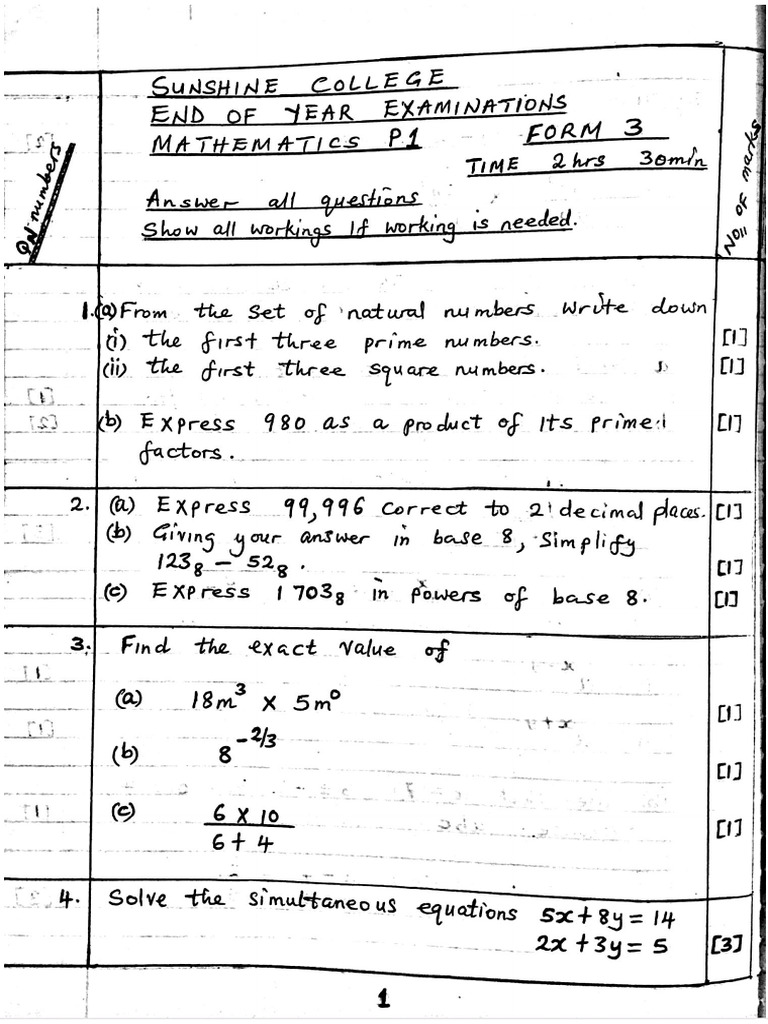 SUNSHINE COLLEGE
END OF YEAR EXAMINATIONS
MATHEMATICS P1 FORM 3
TIME 2hrs 30min
QN numbers
Answer all questions
Show all workings If working is needed.
No. of marks
1.(a) From the set of natural numbers write down
(i) the first three prime numbers. [1]
(ii) the first three square numbers. [1]
(b) Express 980 as a product of its prime [1]
factors.
2. (a) Express 99,996 correct to 2 decimal places. [1]
(b) Giving your answer in base 8, simplify
123₈ – 52₈. [1]
(c) Express 1703₈ in powers of base 8. [1]
3. Find the exact value of
(a) 18m³ × 5m⁰ [1]
(b) 8^(-2/3) [1]
(c) 6 × 10 [1]
6 + 4
4. Solve the simultaneous equations 5x + 8y = 14
2x + 3y = 5 [3]
1